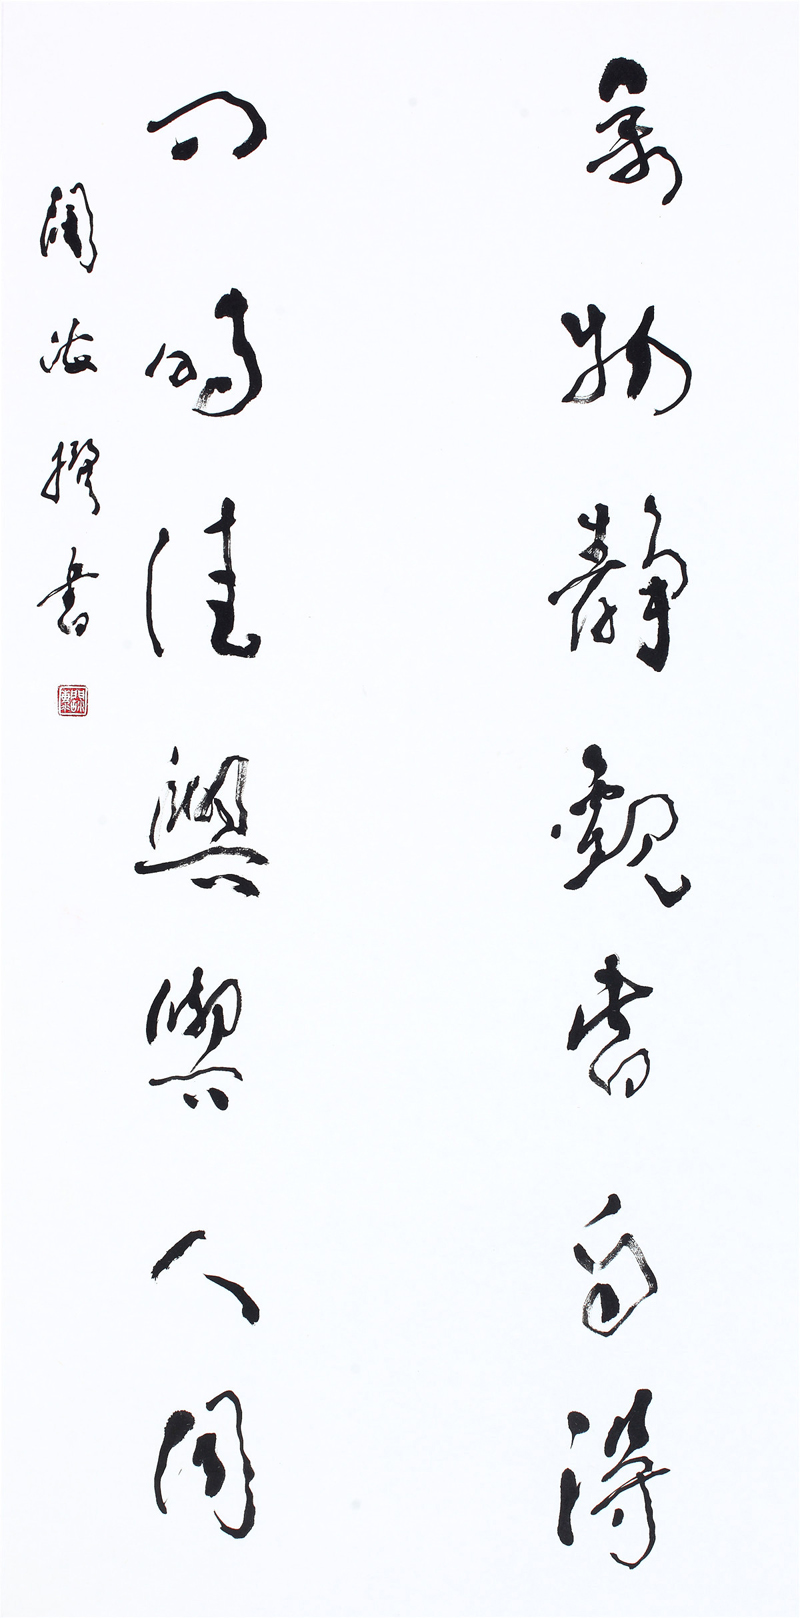 萬物靜觀皆自得
四時佳興與人同
書